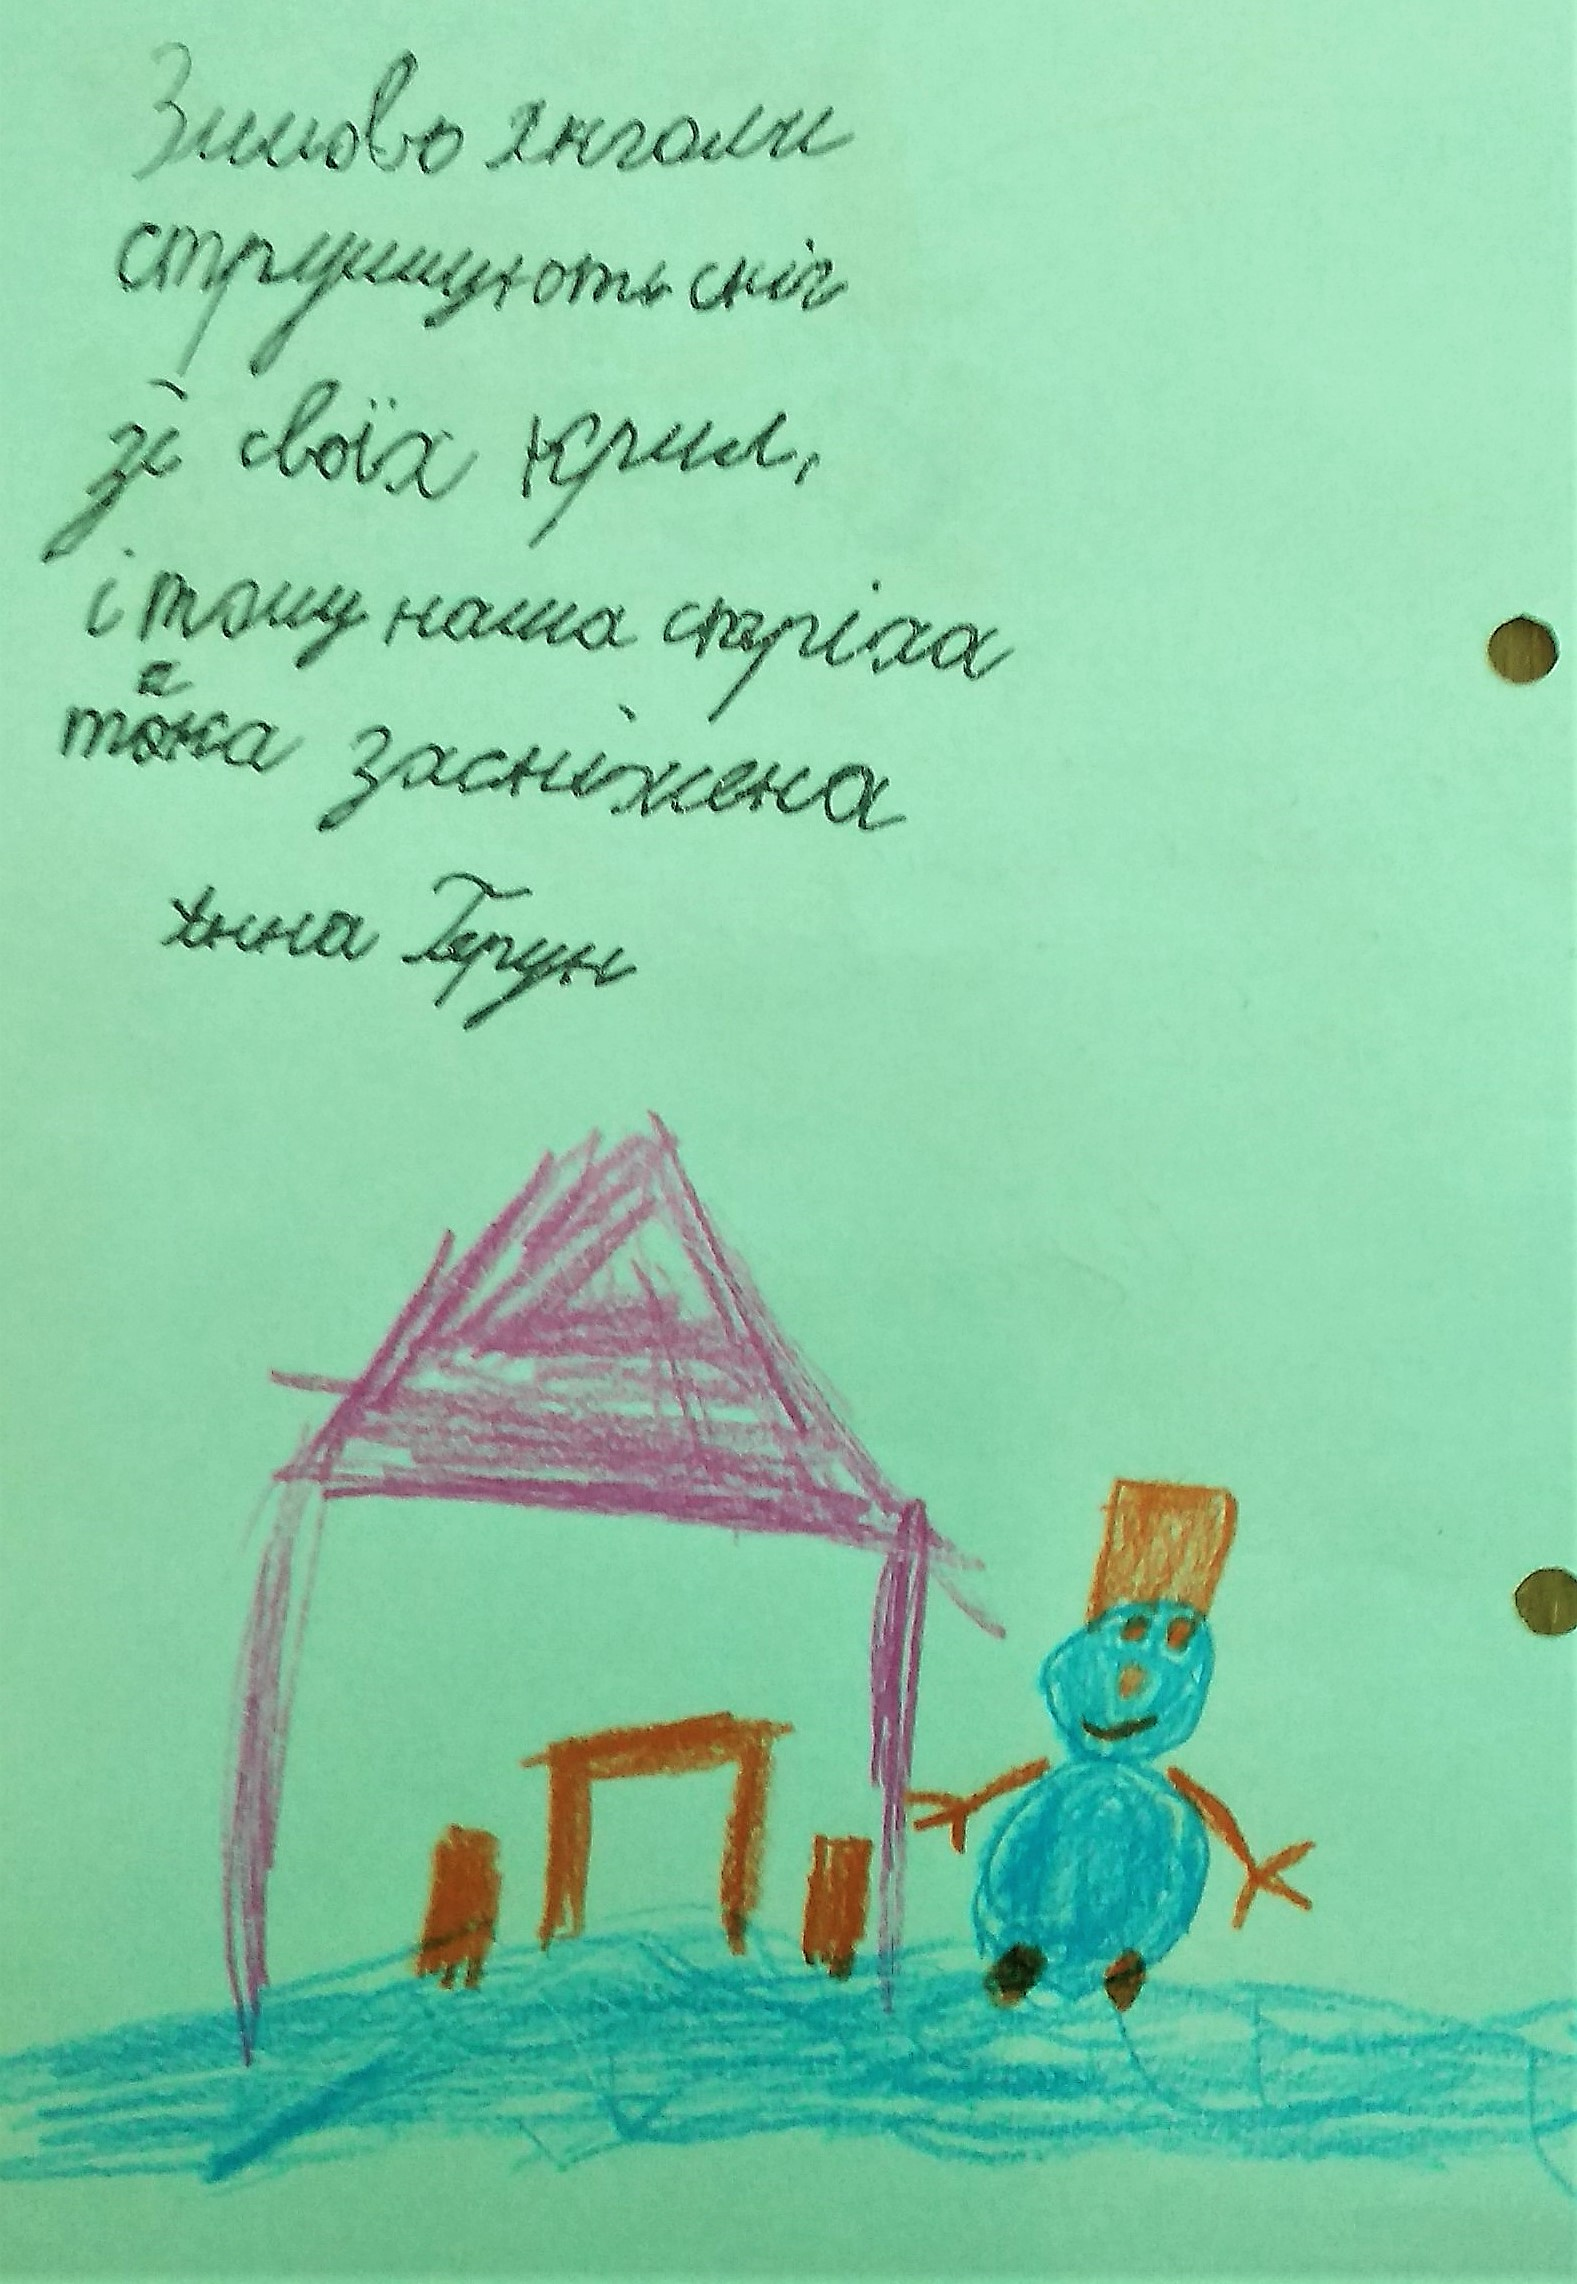 Зимово янголи
струшують сніг
зі своїх крил,
і тому наша стріха
така засніжена
Анна Ґерун